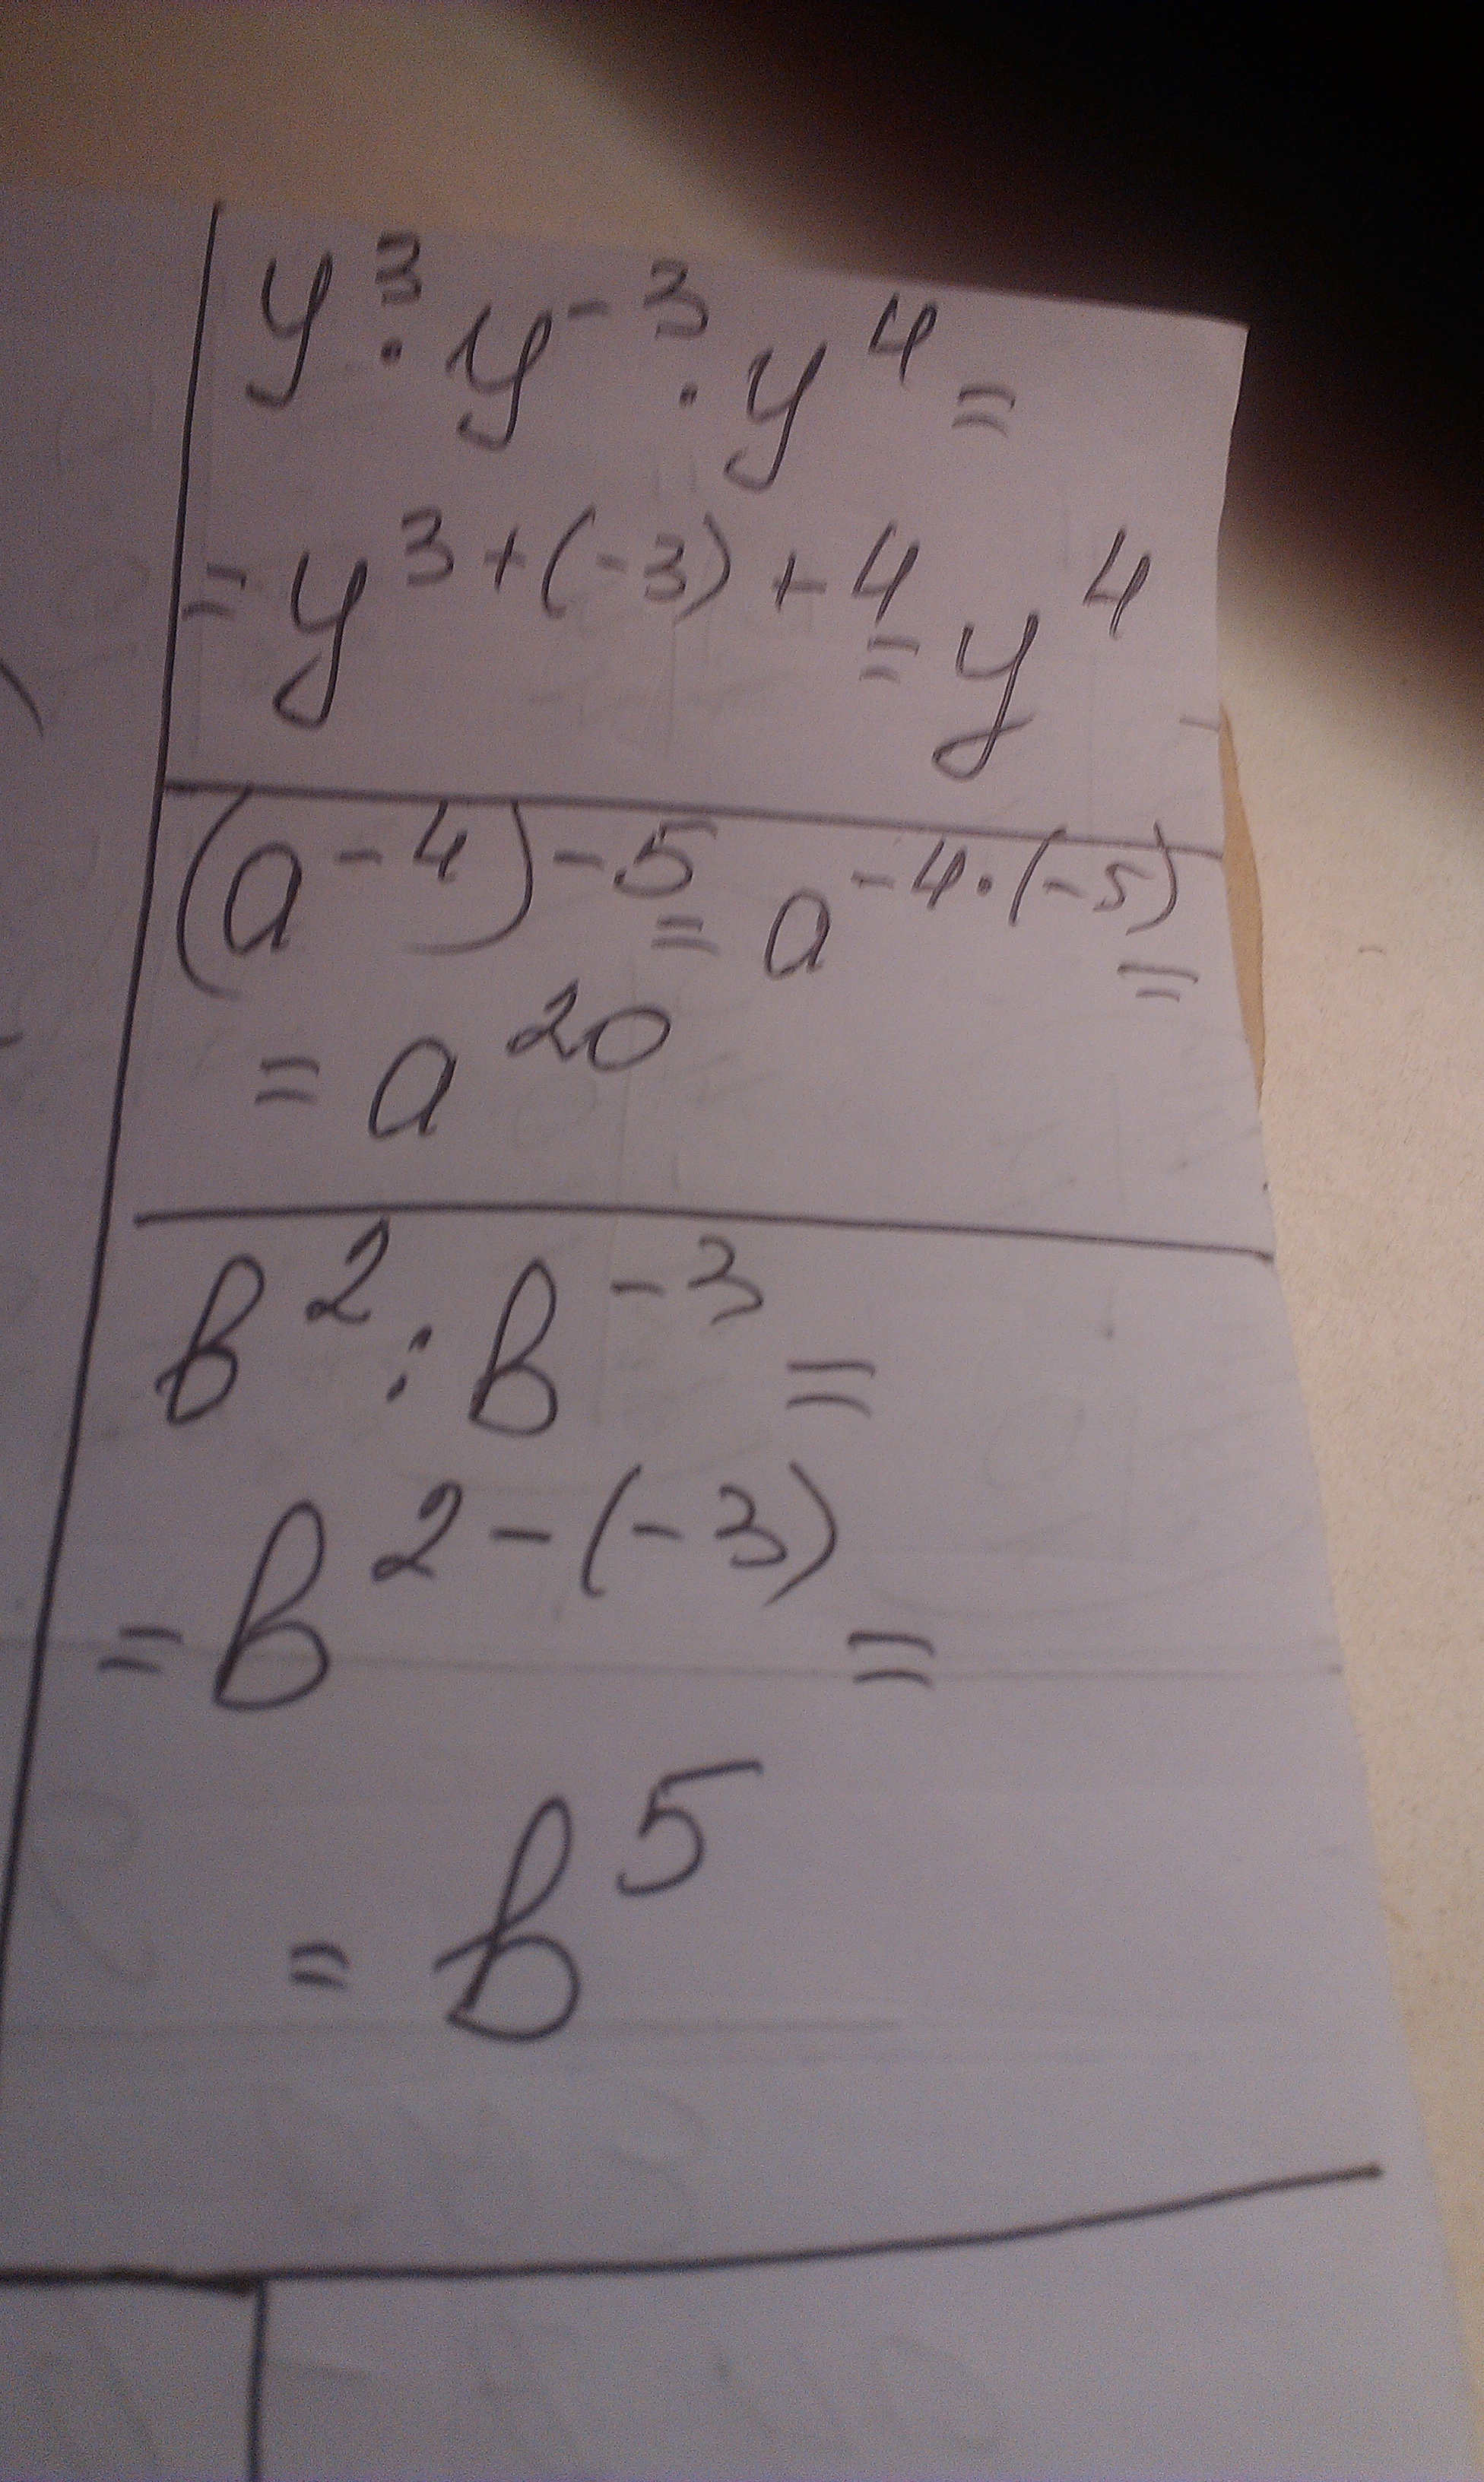 y³ · y⁻³ · y⁴ =
= y³⁺⁽⁻³⁾⁺⁴ = y⁴
(a⁻⁴)⁻⁵ = a⁻⁴˙⁽⁻⁵⁾ =
= a²⁰
в² : в⁻³ =
= в²⁻⁽⁻³⁾ =
= в⁵